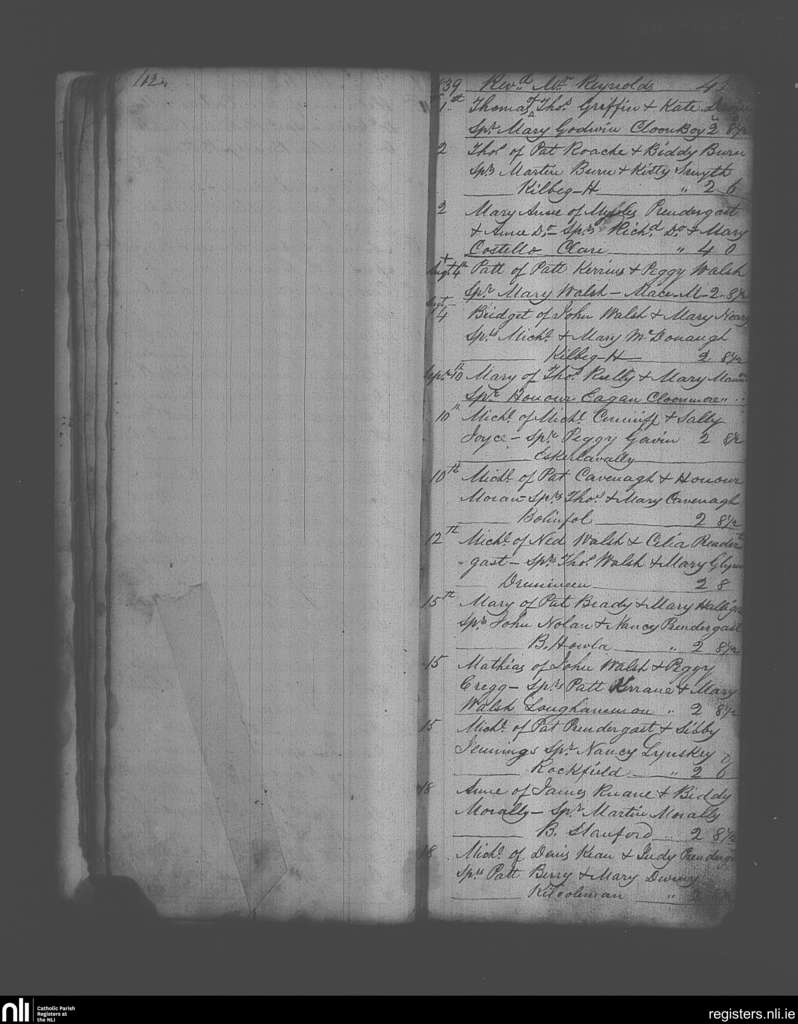 112
39 Revd. Mr. Reynolds 4
1st Thomas of Thos. Griffin & Kate
Spr. Mary Godwin CloonBoy 2 8½
2 Thos. of Pat Roache & Biddy Burn
Sprs Martin Burn & Kitty Smyth
Kilbeg-H " 2 6
2 Mary Anne of Myles Prendergast
& Anne Do- Sprs. Richd. Do & Mary
Costello Clare " 4 0
Augt 4th Patt of Patt Kerrins & Peggy Walsh
Spr. Mary Walsh - Mace-M- 2 - 8½
Sept 4 Bridget of John Walsh & Mary Henry
Sprs Michl. & Mary McDonaugh
Kilbeg-H 2 8½
Sept. 10th Mary of Thos. Rutty & Mary
Spr. Honour Eagan Cloonmore " "
10th Michl. of Michl. Cunniff & Sally
Joyce - Spr. Peggy Gavin 2 8½
Eskerlavally
10th Michl. of Pat Cavenagh & Honour
Moran - Sprs Thos. & Mary Cavenagh
Bolinfol 2 8½
12th Michl. of Ned Walsh & Celia Prender
-gast - Sprs Thos. Walsh & Mary Glynn
Drumineen 2 8
15th Mary of Pat Brady & Mary Halligan
Sprs John Nolan & Nancy Prendergast
B. Howla " 2 8½
15 Mathias of John Walsh & Peggy
Gregg - Sprs Patt Kerrane & Mary
Walsh Loughanemon " 2 8½
15 Michl. of Pat Prendergast & Sibby
Jennings Spr. Nancy Lynskey
Rockfield " 2 6
18 Anne of James Ruane & Biddy
Morally - Spr. Martin Morally
B. Stanford " 2 8½
18 Michl. of Denis Kean & Judy
Sprs Patt Berry & Mary
Kilcoleman " 2
nli Catholic Parish
Registers at
the NLI
registers.nli.ie